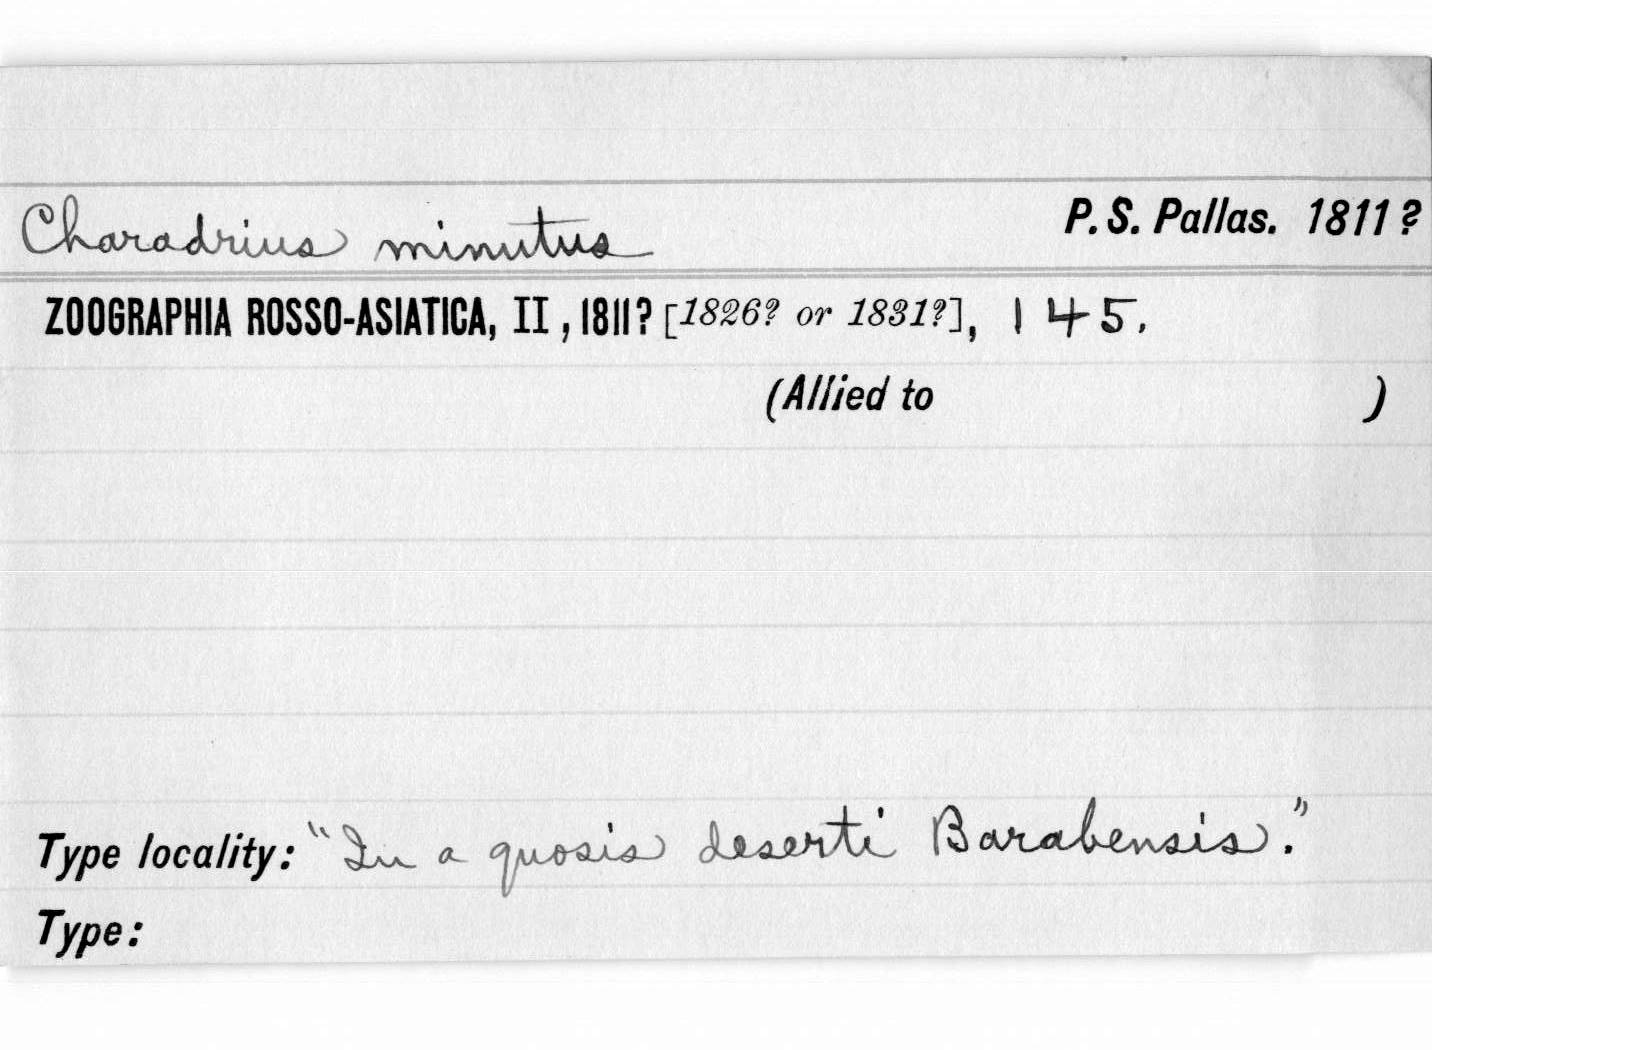 Charadrius minutus P. S. Pallas. 1811?
ZOOGRAPHIA ROSSO-ASIATICA, II, 1811? [1826? or 1831?], 145.
(Allied to )
Type locality: "In a quosis deserti Barabensis."
Type: